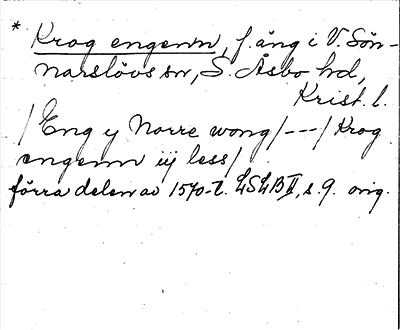 * Krog engenn, f. äng i V. Sön-
narslövs sn, S. Åsbo hd,
Krist. l.
/Eng y Norre wong/---/Krog
engenn iij less/
förra delen av 1570-t. LSLB II, s. 9. orig.